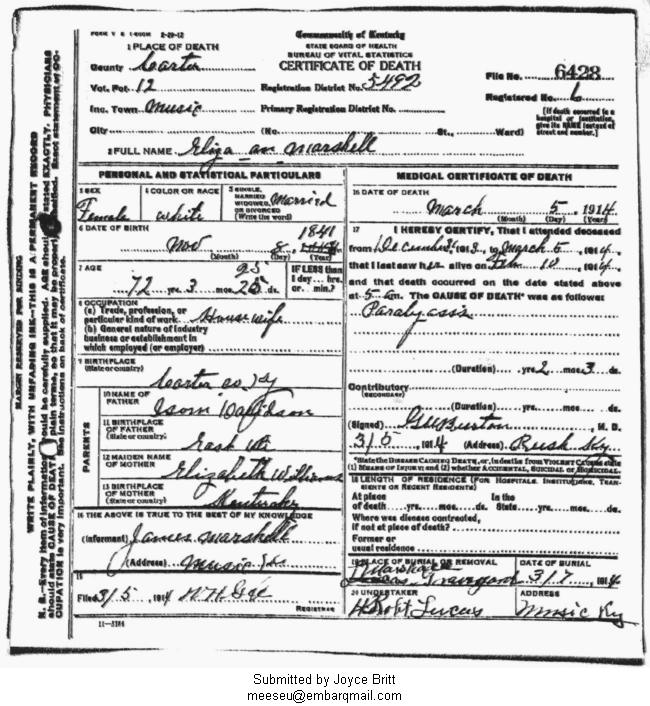 FORM V S 1-500M 2-29-12
Commonwealth of Kentucky
STATE BOARD OF HEALTH
BUREAU OF VITAL STATISTICS
CERTIFICATE OF DEATH
1 PLACE OF DEATH
County Carter
Vot. Pct. 12
Registration District No. 5492
File No. 6428
Inc. Town Music
Primary Registration District No.
Registered No. 6
City (No. St., Ward)
[If death occurred in a hospital or institution, give its NAME instead of street and number.]
2 FULL NAME Eliza an Marshell
PERSONAL AND STATISTICAL PARTICULARS
3 SEX Female
4 COLOR OR RACE white
5 SINGLE, MARRIED, WIDOWED, OR DIVORCED (Write the word) Married
6 DATE OF BIRTH
1841
Nov 8
(Month) (Day) (Year)
7 AGE
72 yrs. 3 mos. ds.
IF LESS than 1 day hrs. or min.?
8 OCCUPATION
(a) Trade, profession, or particular kind of work House wife
(b) General nature of industry business or establishment in which employed (or employer)
9 BIRTHPLACE
(State or country)
Carter co, Ky
PARENTS
10 NAME OF FATHER
11 BIRTHPLACE OF FATHER
(State or country)
12 MAIDEN NAME OF MOTHER Elizabeth Williams
13 BIRTHPLACE OF MOTHER
(State or country) Kentucky
14 THE ABOVE IS TRUE TO THE BEST OF MY KNOWLEDGE
(Informant) James Marshell
(Address) Music
15
Filed 3/5 1914
REGISTRAR
11-3184
MEDICAL CERTIFICATE OF DEATH
16 DATE OF DEATH
March 5 1914
(Month) (Day) (Year)
17 I HEREBY CERTIFY, That I attended deceased
from 1913, to March 5, 1914,
that I last saw her alive on Feb 10, 1914,
and that death occurred on the date stated above
at 5 am. The CAUSE OF DEATH* was as follows:
(Duration) yrs. 2 mos. 3 ds.
Contributory
(SECONDARY)
(Duration) yrs. mos. ds.
(Signed) G W Burton, M. D.
3/6, 1914 (Address) Rush Ky
*State the DISEASE CAUSING DEATH, or, in deaths from VIOLENT CAUSES state (1) MEANS OF INJURY; and (2) whether ACCIDENTAL, SUICIDAL or HOMICIDAL.
18 LENGTH OF RESIDENCE (FOR HOSPITALS, INSTITUTIONS, TRANSIENTS OR RECENT RESIDENTS)
At place of death yrs. mos. ds. In the State yrs. mos. ds.
Where was disease contracted, if not at place of death?
Former or usual residence
19 PLACE OF BURIAL OR REMOVAL
DATE OF BURIAL
3/7, 1914
20 UNDERTAKER
Lucas
ADDRESS
Music Ky
MARGIN RESERVED FOR BINDING
WRITE PLAINLY, WITH UNFADING INK—THIS IS A PERMANENT RECORD
Submitted by Joyce Britt
meeseu@embarqmail.com